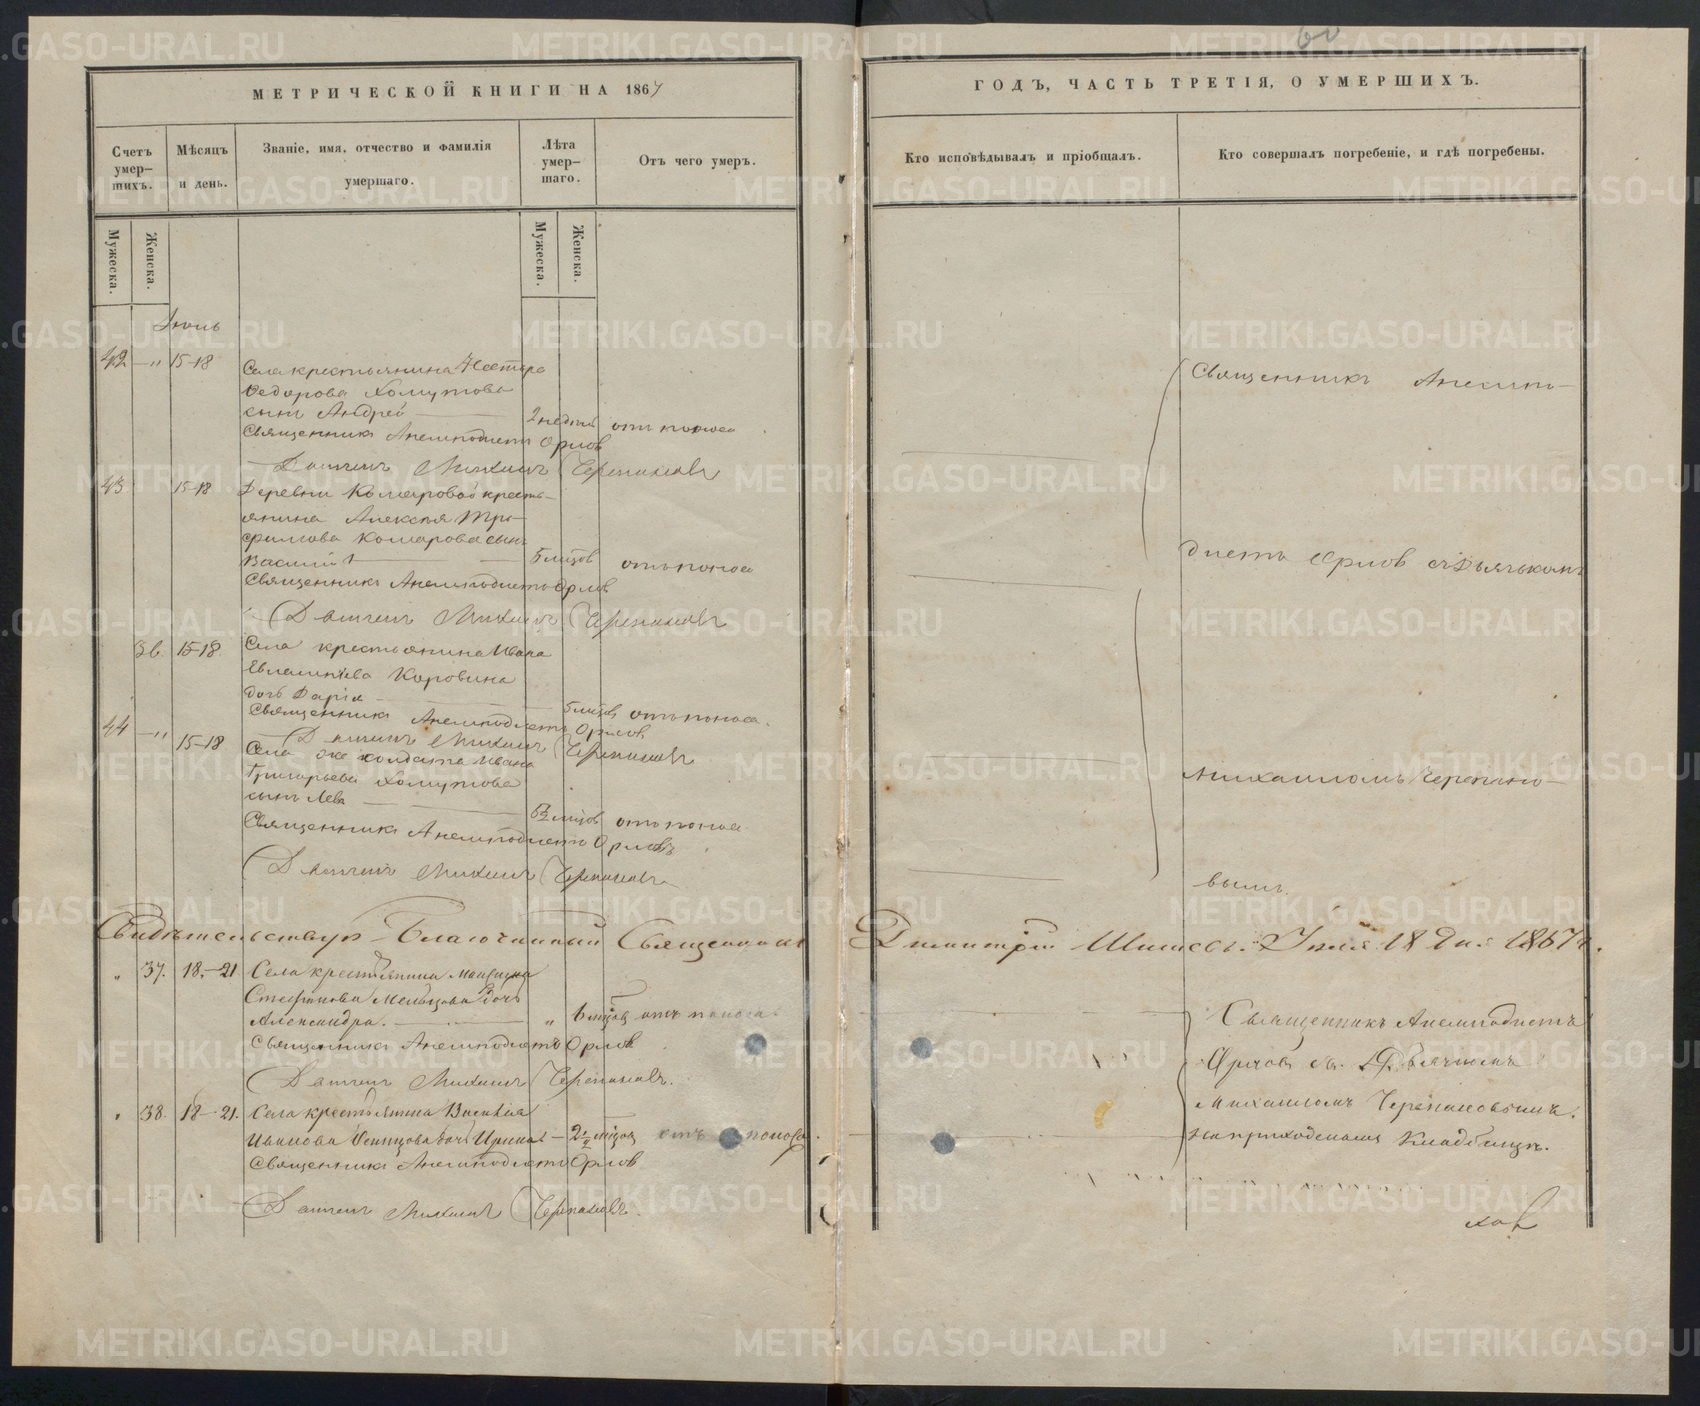 МЕТРИЧЕСКОЙ КНИГИ НА 1867
Счетъ умер-шихъ.
Мѣсяцъ и день.
Званіе, имя, отчество и фамилія умершаго.
Лѣта умер-шаго.
Отъ чего умеръ.
Мужеска.
Женска.
Мужеска.
Женска.
Іюль
42 — „ 15-18 Села крестьянина Нестера
Ѳедорова Хомутова
сынъ Андрей — 2 недѣль отъ поноса
Священникъ Анемподистъ Орлов
Дьячекъ Михаилъ Черепановъ
43 15-18 Деревни Комаровой кресть-
янина Алексѣя Тро-
фимова Комарова сынъ
Василій — 5 мцов отъ поноса
Священникъ Анемподистъ Орлов
Дьячекъ Михаилъ Черепановъ
36. 15-18 Села крестьянина Ивана
Евлампіева Коровина
дочь Дарія — 5 мцов отъ поноса.
Священникъ Анемподистъ Орлов
Дьячекъ Михаилъ Черепановъ
44 — „ 15-18 Села же солдата Ивана
Григорьева Хомутова
сынъ Левъ — мцов отъ поноса
Священникъ Анемподистъ Орловъ
Дьячекъ Михаилъ Черепановъ
Свидѣтельствую Благочинный Священникъ
„ 37. 18.-21 Села крестьянина
Стефанова дочь
Александра. — „ 6 мцов отъ поноса.
Священникъ Анемподистъ Орлов
Дьячекъ Михаилъ Черепановъ.
„ 38. 18-21. Села крестьянина Василія
Иванова дочь Ирина — 2½ мцов отъ поноса.
Священникъ Анемподистъ Орлов
Дьячекъ Михаилъ Черепановъ.
60
ГОДЪ, ЧАСТЬ ТРЕТІЯ, О УМЕРШИХЪ.
Кто исповѣдывалъ и пріобщалъ.
Кто совершалъ погребеніе, и гдѣ погребены.
Священникъ Анемпо-
дистъ Орлов съ Дьячкомъ
Михаиломъ Черепано-
вымъ.
Димитрій Іюля 18 дня 1867 г.
Священникъ Анемподистъ
Орлов съ Дьячкомъ
Михаиломъ Черепановымъ.
На приходскомъ Кладбищѣ.
METRIKI.GASO-URAL.RU